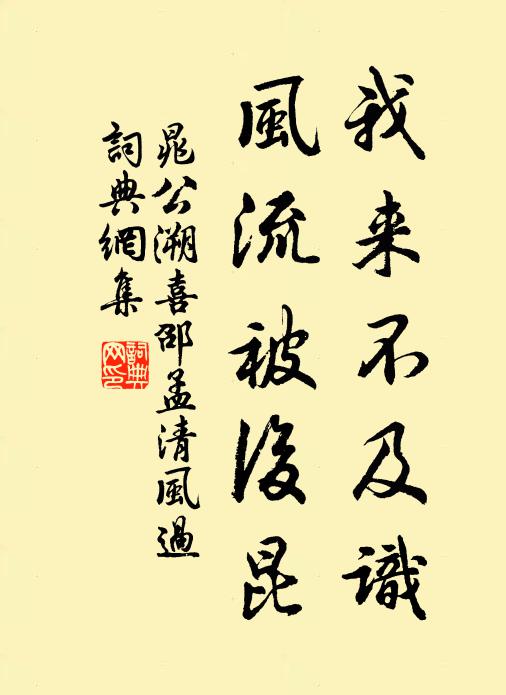 我来不及識
風流被後昆
晁公溯喜邵孟清風過
詞典網集
詞典網印